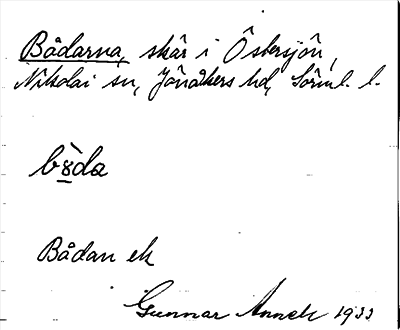 Bådarna, skär i Östersjön,
Nikolai sn, Jönåkers hd, Sörml. l.
bòda
Bådan ek
Gunnar Annell 1933